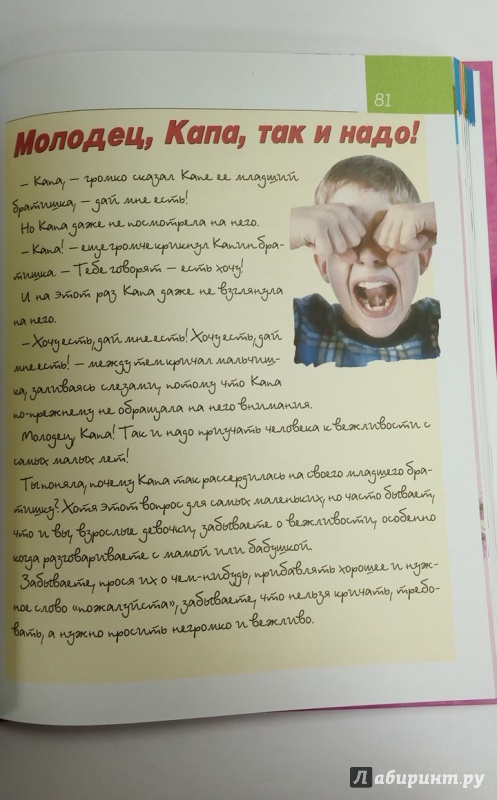 81
Молодец, Капа, так и надо!
– Капа, – громко сказал Капе ее младший
братишка, – дай мне есть!
Но Капа даже не посмотрела на него.
– Капа! – еще громче крикнул Капин бра-
тишка. – Тебе говорят – есть хочу!
И на этот раз Капа даже не взглянула
на него.
– Хочу есть, дай мне есть! Хочу есть, дай
мне есть! – между тем кричал мальчиш-
ка, заливаясь слезами, потому что Капа
по-прежнему не обращала на него внимания.
Молодец, Капа! Так и надо приучать человека к вежливости с
самых малых лет!
Ты поняла, почему Капа так рассердилась на своего младшего бра-
тишку? Хотя этот вопрос для самых маленьких, но часто бывает,
что и вы, взрослые девочки, забываете о вежливости, особенно
когда разговариваете с мамой или бабушкой.
Забываете, прося их о чем-нибудь, прибавлять хорошее и нуж-
ное слово «пожалуйста», забываете, что нельзя кричать, требо-
вать, а нужно просить негромко и вежливо.
Лабиринт.ру